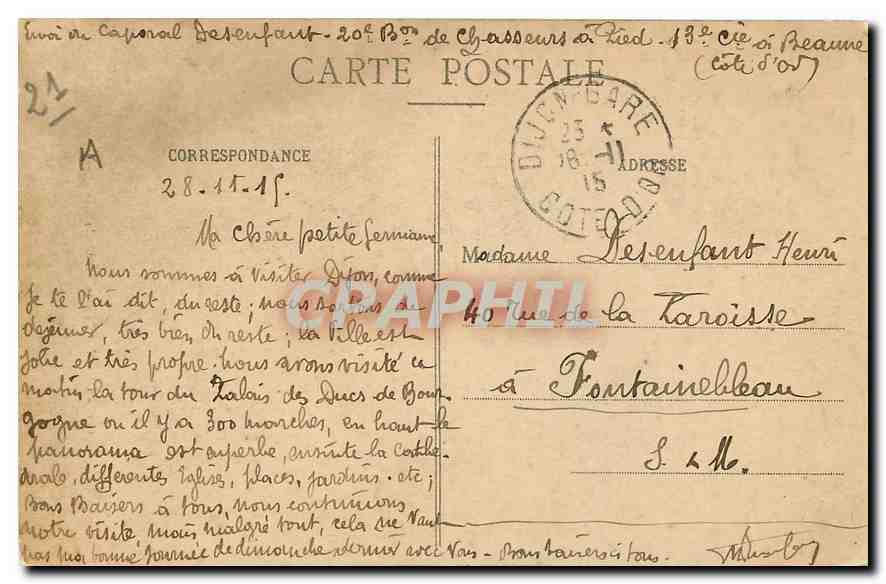 Envoi du Caporal Desenfant - 20e Bon de Chasseurs à Pied - 13e Cie à Beaune
(Côte d'Or)
CARTE POSTALE
21
A
DIJON-GARE
23
18 -11
15
COTE-D'OR
CORRESPONDANCE
ADRESSE
28-11-15.
Ma Chère petite Germaine,
Nous sommes à visiter Dijon, comme
je te l'ai dit, du reste; nous sortons de
dejeuner, très bien du reste; la Ville est
jolie et très propre. nous avons visité ce
matin la tour du Palais des Ducs de Bour
gogne ou il y a 300 marches, en haut le
panorama est superbe, ensuite la Cathé-
drale, differentes Eglises, places, jardins. etc;
Bons Baisers à tous, nous continuons
notre visite, mais malgré tout, cela ne Vaut
pas ma bonne journée de dimanche dernier avec Vous - Bons baisers à tous.
Madame Desenfant Henri
40 rue de la Paroisse
à Fontainebleau
S. & M.
CRAPHIL